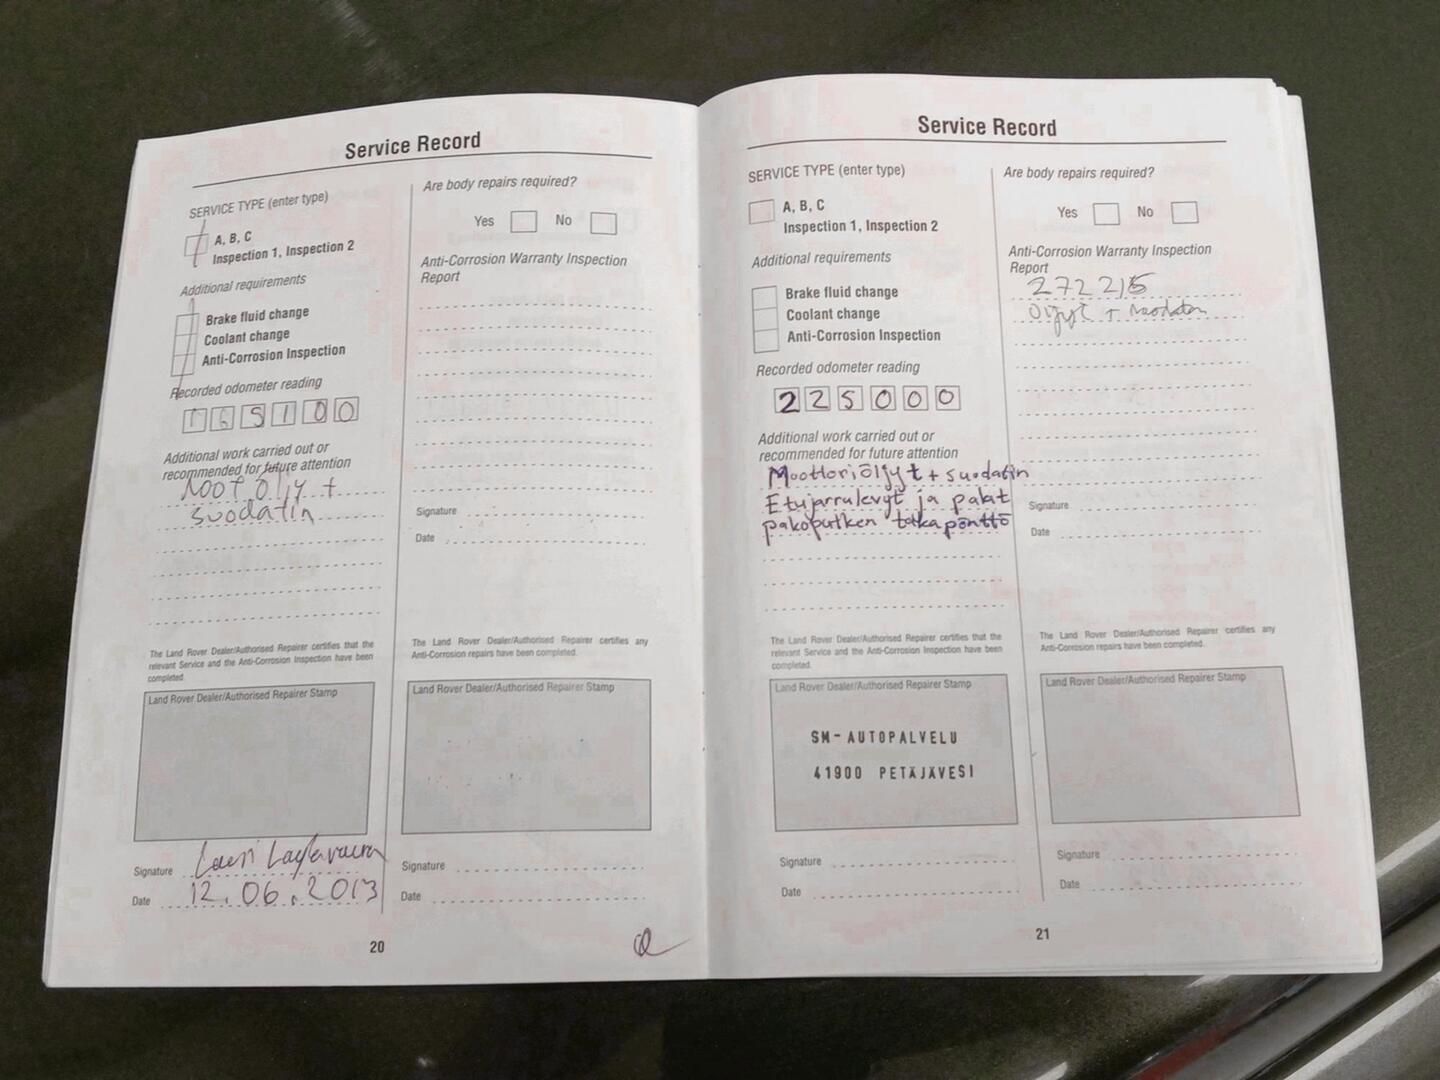 Service Record
SERVICE TYPE (enter type)
A, B, C
Inspection 1, Inspection 2
Additional requirements
Brake fluid change
Coolant change
Anti-Corrosion Inspection
Recorded odometer reading
165100
Additional work carried out or
recommended for future attention
Moot.öljy +
suodatin
The Land Rover Dealer/Authorised Repairer certifies that the
relevant Service and the Anti-Corrosion Inspection have been
completed.
Land Rover Dealer/Authorised Repairer Stamp
Signature Lauri
Date 12.06.2013
Are body repairs required?
Yes No
Anti-Corrosion Warranty Inspection
Report
Signature
Date
The Land Rover Dealer/Authorised Repairer certifies any
Anti-Corrosion repairs have been completed.
Land Rover Dealer/Authorised Repairer Stamp
Signature
Date
20
Service Record
SERVICE TYPE (enter type)
A, B, C
Inspection 1, Inspection 2
Additional requirements
Brake fluid change
Coolant change
Anti-Corrosion Inspection
Recorded odometer reading
225000
Additional work carried out or
recommended for future attention
Moottoriöljyt + suodatin
Etujarrulevyt ja palat
pakoputken takapönttö
The Land Rover Dealer/Authorised Repairer certifies that the
relevant Service and the Anti-Corrosion Inspection have been
completed.
Land Rover Dealer/Authorised Repairer Stamp
SM-AUTOPALVELU
41900 PETÄJÄVESI
Signature
Date
Are body repairs required?
Yes No
Anti-Corrosion Warranty Inspection
Report
272215
Öljyt + suodatin
Signature
Date
The Land Rover Dealer/Authorised Repairer certifies any
Anti-Corrosion repairs have been completed.
Land Rover Dealer/Authorised Repairer Stamp
Signature
Date
21